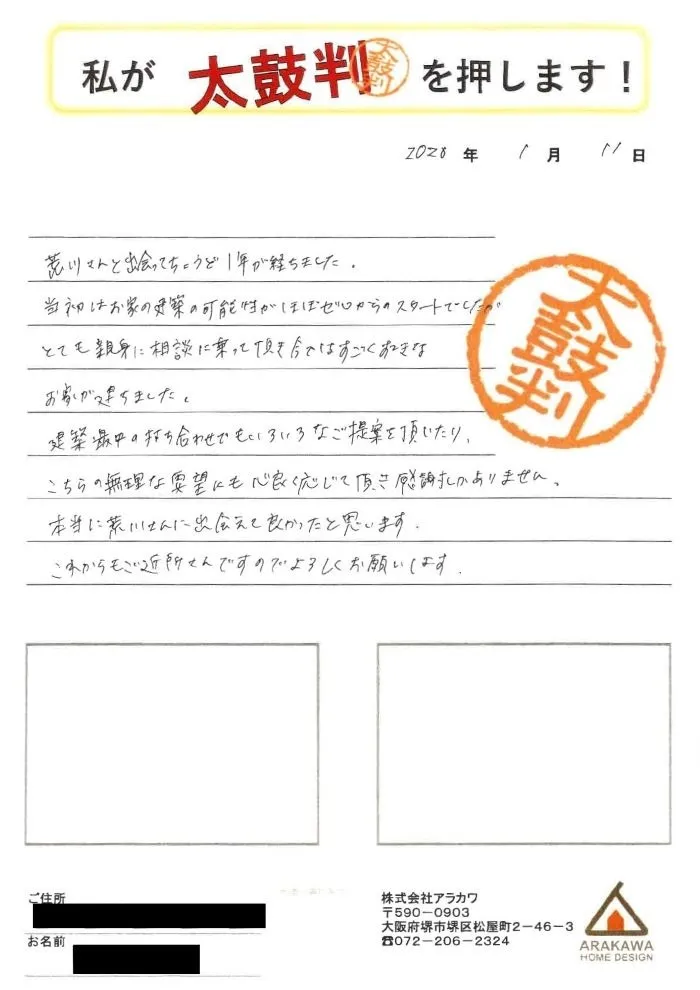 私が 太鼓判 太鼓判 を押します！
2020 年 1 月 11 日
荒川さんと出会ってちょうど1年が経ちました。
当初はお家の建築の可能性がほぼゼロからのスタートでしたが
とても親身に相談に乗って頂き今ではすごくすてきな
お家が建ちました。
太鼓判
建築最中の打ち合わせでもいろいろなご提案を頂いたり、
こちらの無理な要望にも心良く応じて頂き感謝しかありません。
本当に荒川さんに出会えて良かったと思います。
これからもご近所さんですのでよろしくお願いします。
ご住所
お名前
株式会社アラカワ
〒590-0903
大阪府堺市堺区松屋町2-46-3
☎072-206-2324
ARAKAWA
HOME DESIGN